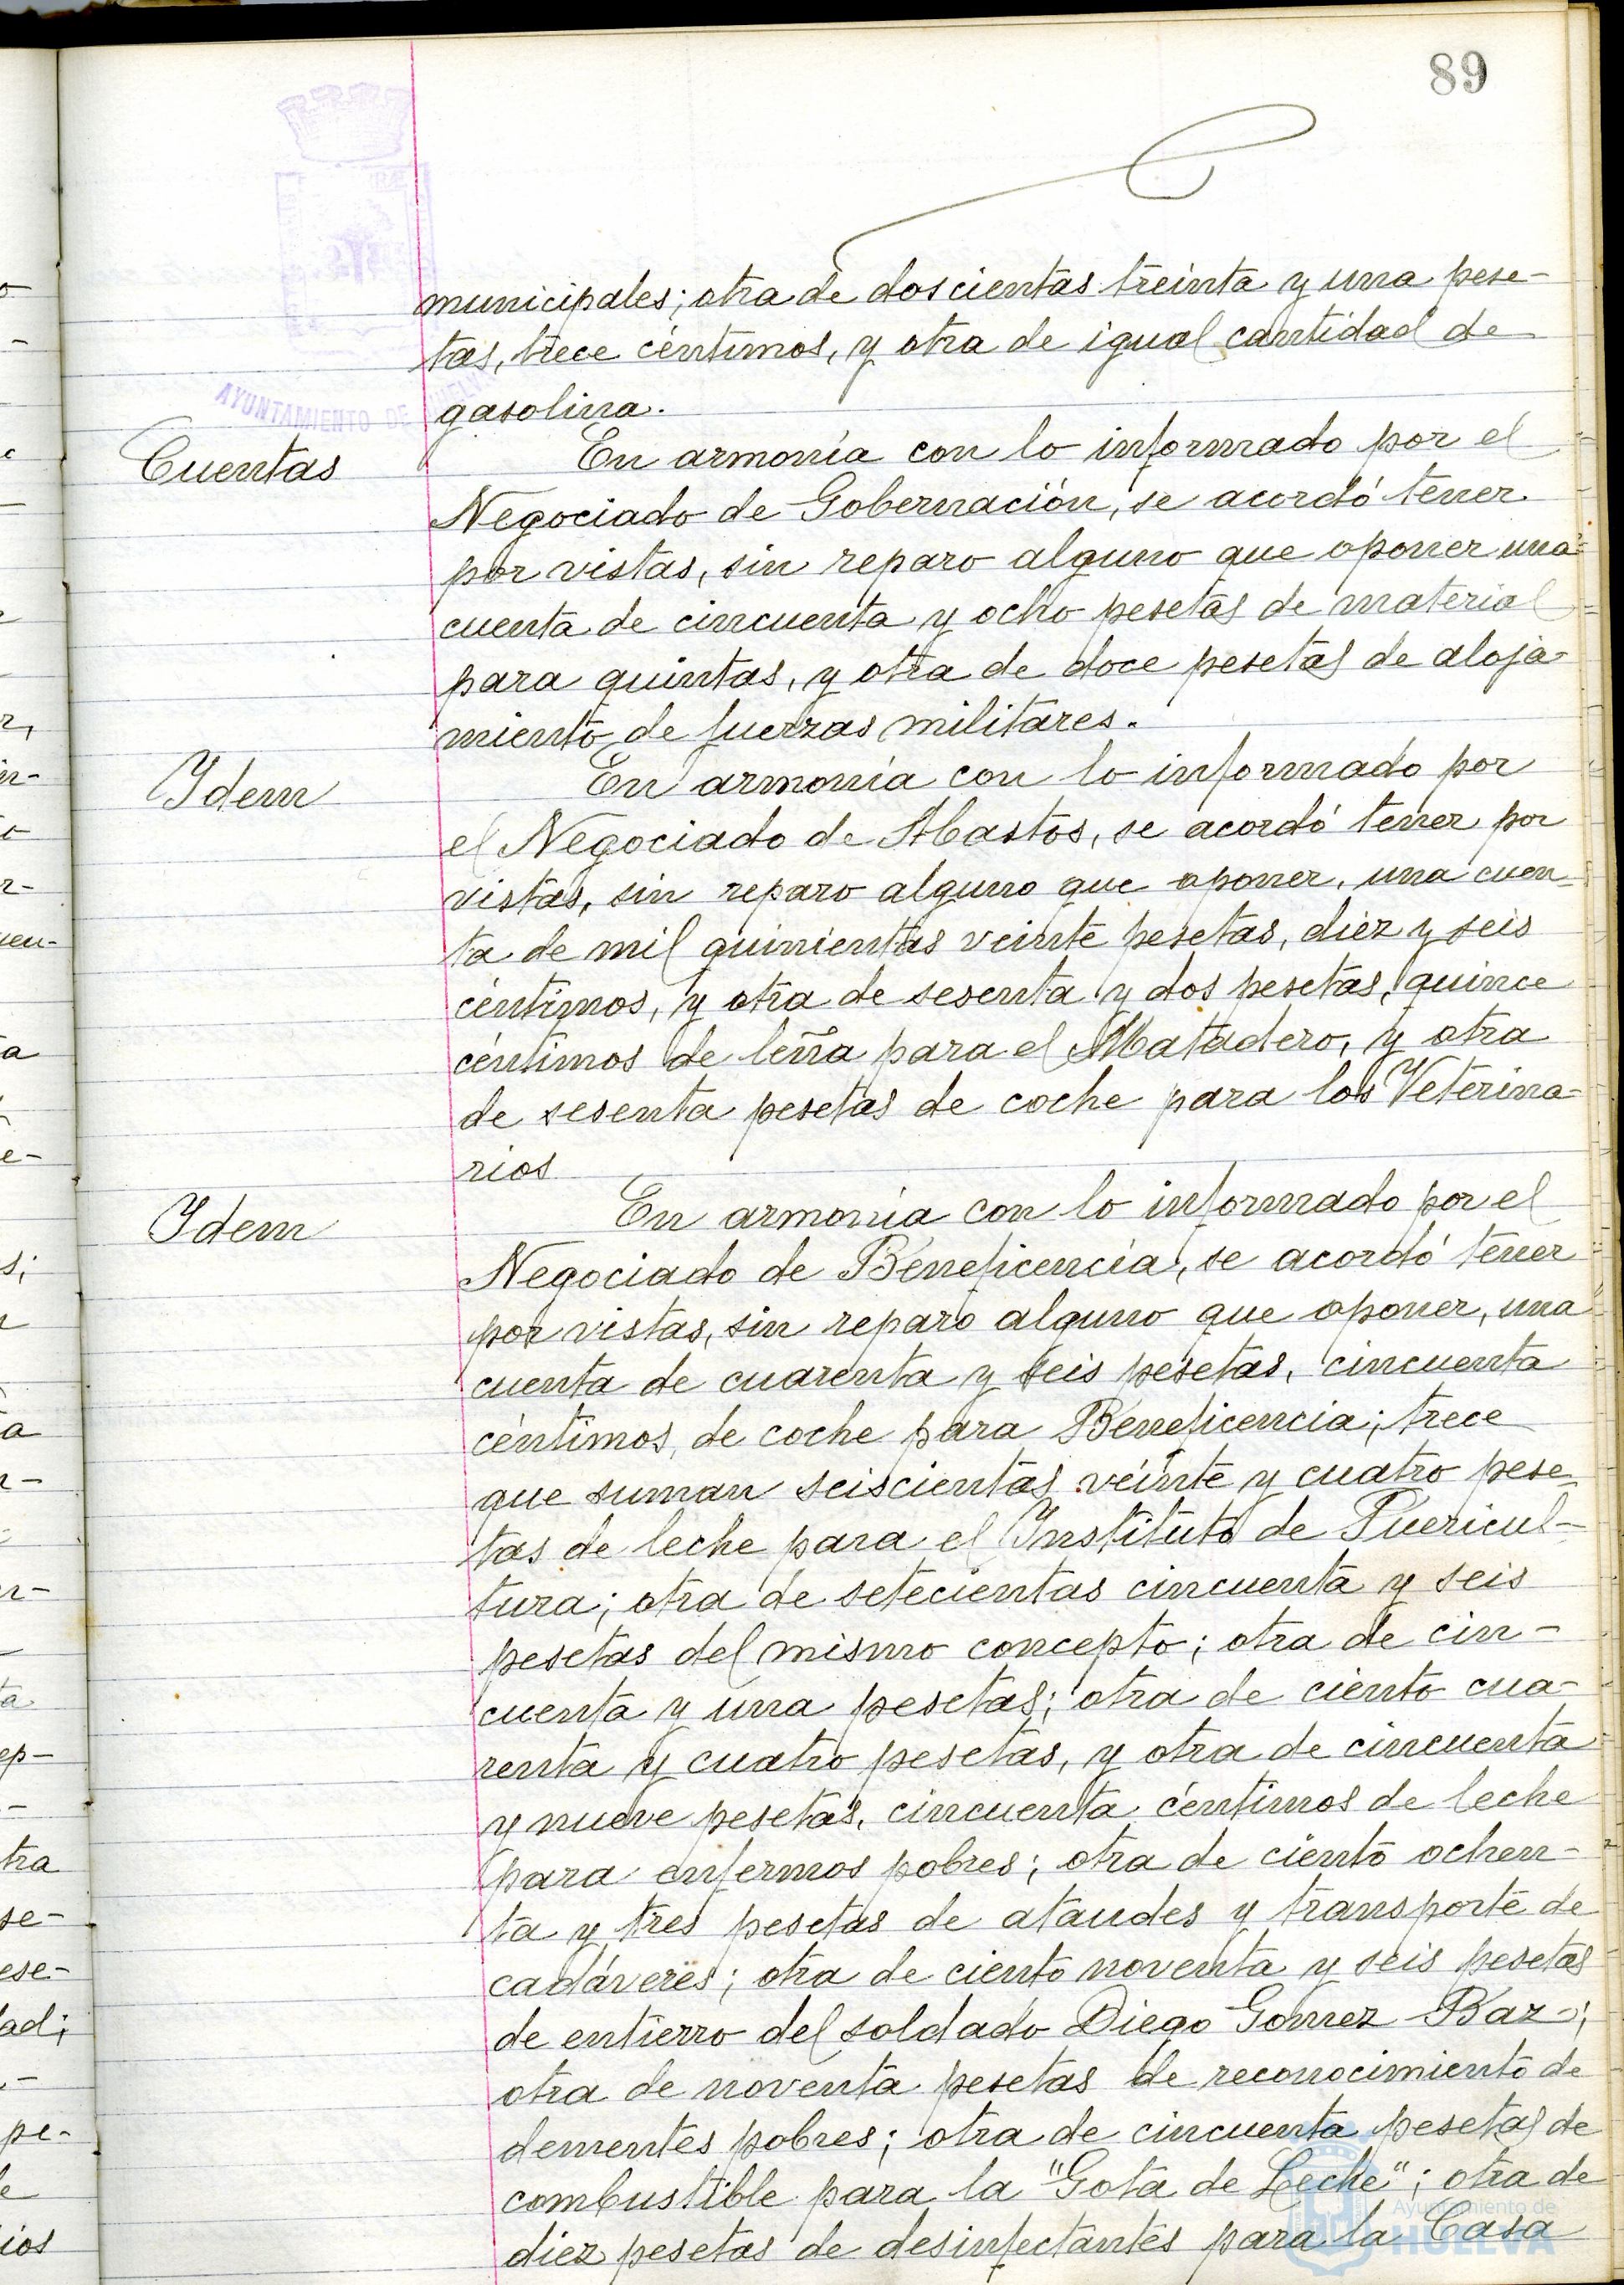 89
municipales; otra de doscientas treinta y una pese-
tas, trece céntimos, y otra de igual cantidad de
gasolina.
AYUNTAMIENTO DE HUELVA
Cuentas
En armonía con lo informado por el
Negociado de Gobernación, se acordó tener
por vistas, sin reparo alguno que oponer una
cuenta de cincuenta y ocho pesetas de material
para quintas, y otra de doce pesetas de aloja-
miento de fuerzas militares.
Idem
En armonía con lo informado por
el Negociado de Abastos, se acordó tener por
vistas, sin reparo alguno que oponer, una cuen-
ta de mil quinientas veinte pesetas, diez y seis
céntimos, y otra de sesenta y dos pesetas, quince
céntimos de leña para el Matadero, y otra
de sesenta pesetas de coche para los Veterina-
rios
Idem
En armonía con lo informado por el
Negociado de Beneficencia, se acordó tener
por vistas, sin reparo alguno que oponer, una
cuenta de cuarenta y seis pesetas, cincuenta
céntimos, de coche para Beneficencia; trece
que suman seiscientas veinte y cuatro pese-
tas de leche para el Instituto de Puericul-
tura; otra de setecientas cincuenta y seis
pesetas del mismo concepto; otra de cin-
cuenta y una pesetas; otra de ciento cua-
renta y cuatro pesetas, y otra de cincuenta
y nueve pesetas, cincuenta céntimos de leche
para enfermos pobres; otra de ciento ochen-
ta y tres pesetas de ataudes y transporte de
cadáveres; otra de ciento noventa y seis pesetas
de entierro del soldado Diego Gomez Baz;
otra de noventa pesetas de reconocimiento de
dementes pobres; otra de cincuenta pesetas de
combustible para la "Gota de Leche"; otra de
diez pesetas de desinfectantes para la Casa
Ayuntamiento de
HUELVA